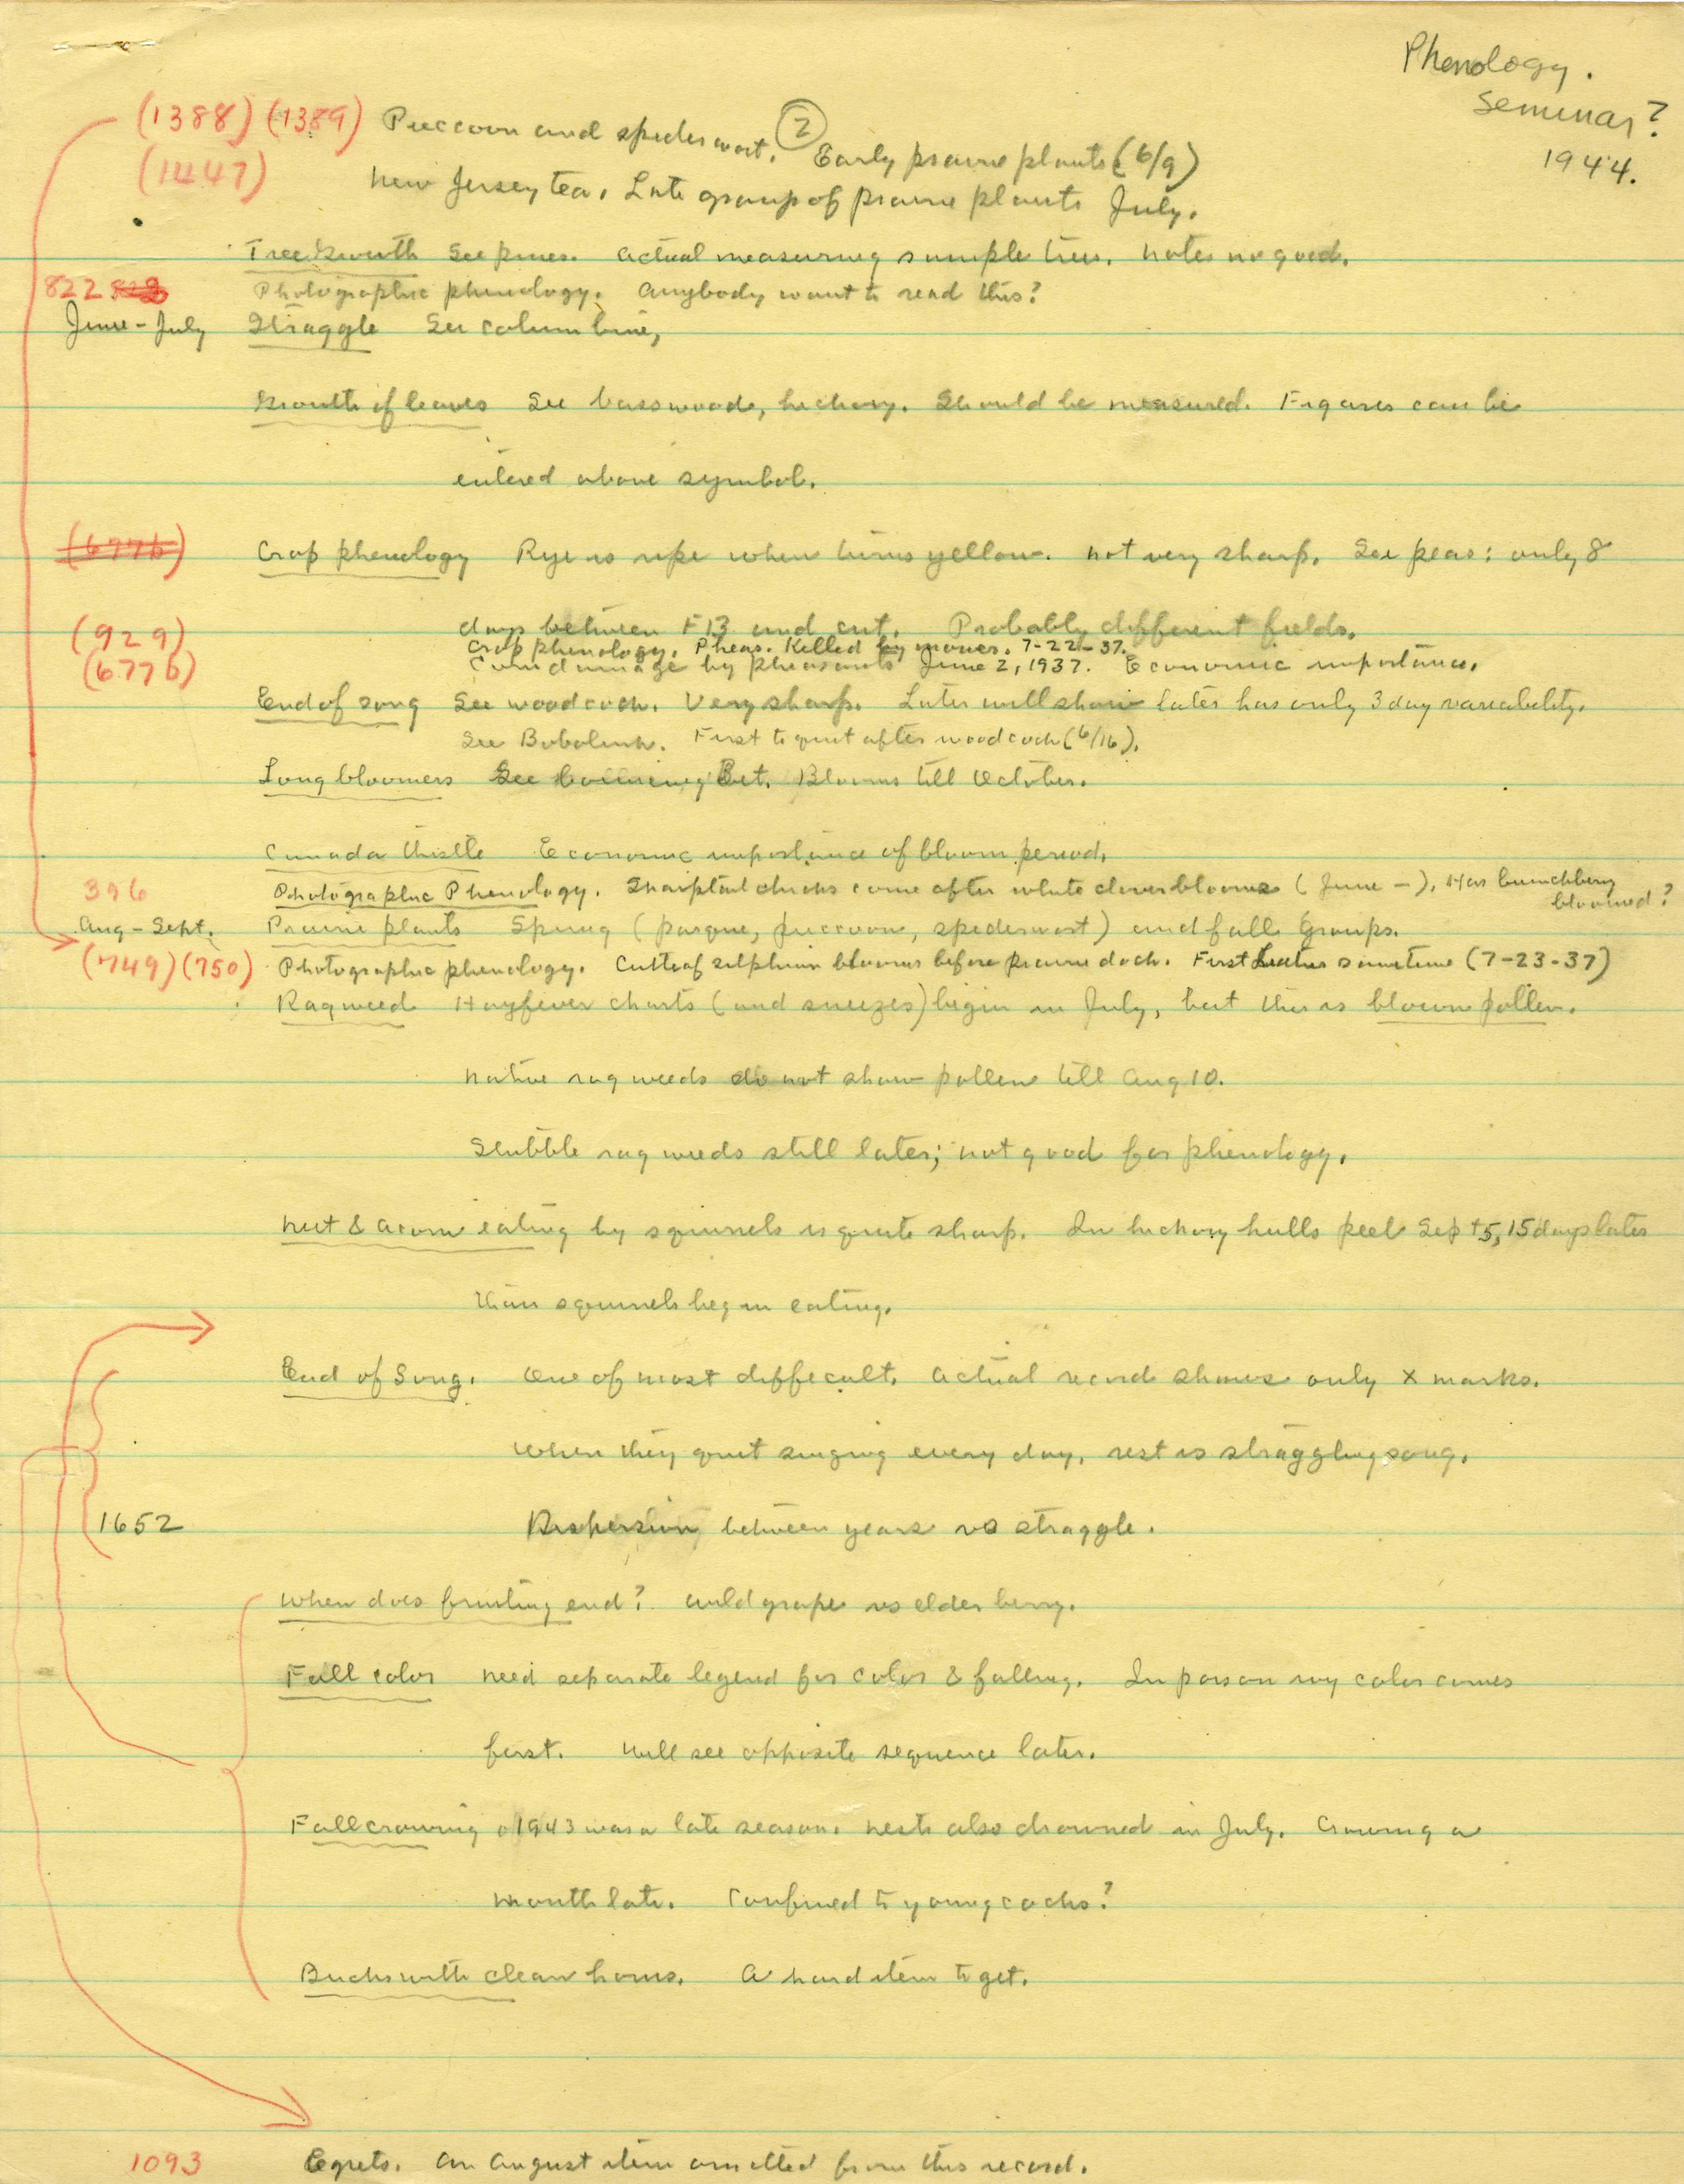 Phenology.
Seminar?
1944.
②
(1388) (1389) Puccoon and spiderwort. Early prairie plants (6/9)
(1447) New Jersey tea. Late group of prairie plants July.
Tree Growth See pines. Actual measuring sample trees. Notes no good.
822 Photographic phenology. Anybody want to read this?
June - July Straggle See columbine,
Growth of leaves See basswood, hickory. Should be measured. Figures can be
entered above symbol.
(677b) Crop phenology Rye is ripe when turns yellow. Not very sharp. See peas: only 8
days between FB and cut. Probably different fields.
(929) Crop phenology. Pheas. Killed by mower. 7-22-37.
(677b) Corn damage by pheasants June 2, 1937. Economic importance.
End of song See woodcock. Very sharp. Later will show later has only 3 day variability.
See Bobolink. First to quit after woodcock (6/16).
Long bloomers See bouncing Bet. Blooms till October.
Canada thistle Economic importance of bloom period.
396 Photographic Phenology. Sharptail chicks come after white clover blooms (June -). Has bunchberry bloomed?
Aug - Sept. Prairie plants Spring (pasque, puccoon, spiderwort) and fall groups.
(749) (750) Photographic phenology. Cutleaf silphium blooms before prairie dock. First Leatus sometime (7-23-37)
Ragweed Hayfever charts (and sneezes) begin in July, but this is blown pollen.
Native ragweeds do not show pollen till Aug 10.
Stubble ragweeds still later; not good for phenology.
Nut & acorn eating by squirrels is quite sharp. In hickory hulls peel Sept 5, 15 days later
than squirrels begin eating.
End of Song. One of most difficult. Actual record shows only x marks.
When they quit singing every day, rest is straggling song.
1652 Dispersion between years vs straggle.
When does fruiting end? Wild grape vs elderberry.
Fall color Need separate legend for color & falling. In poison ivy color comes
first. Will see opposite sequence later.
Fall crowing 1943 was a late season. Nests also drowned in July. Crowing a
month late. Confined to young cocks?
Bucks with clean horns. A hard item to get.
1093 Egrets. An August item omitted from this record.